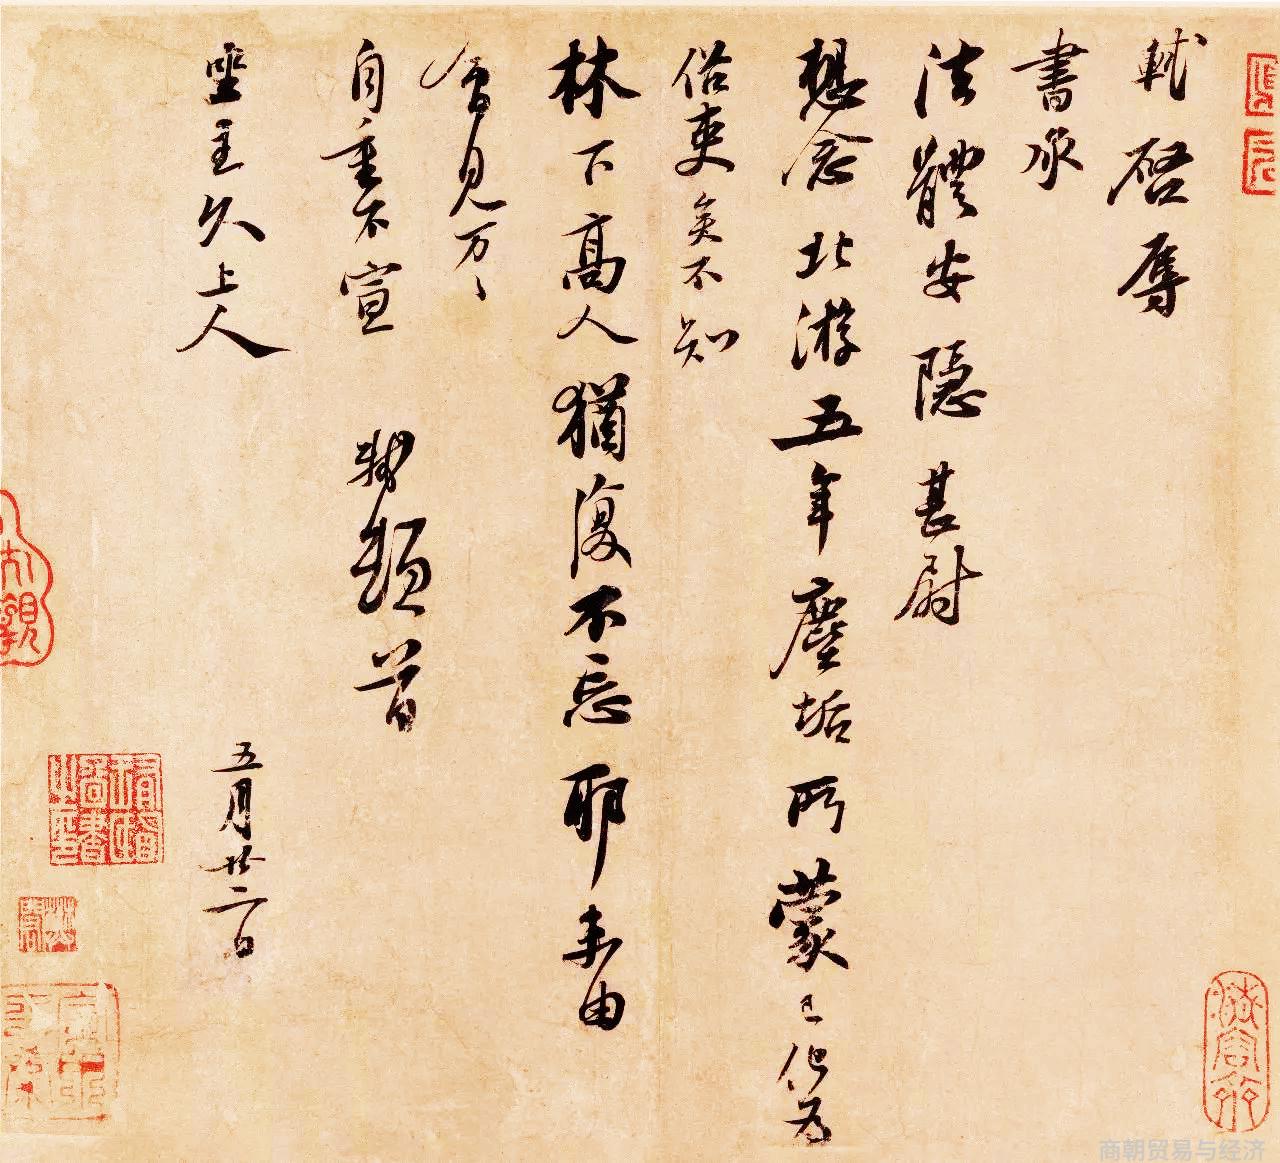 軾啓辱
書承
法體安隱甚慰
想念北游五年塵垢所蒙已化為
俗吏矣不知
林下高人猶復不忘耶未由
會見万〻
自重不宣 軾頓首
坐主久上人 五月廿二日
商朝贸易与经济